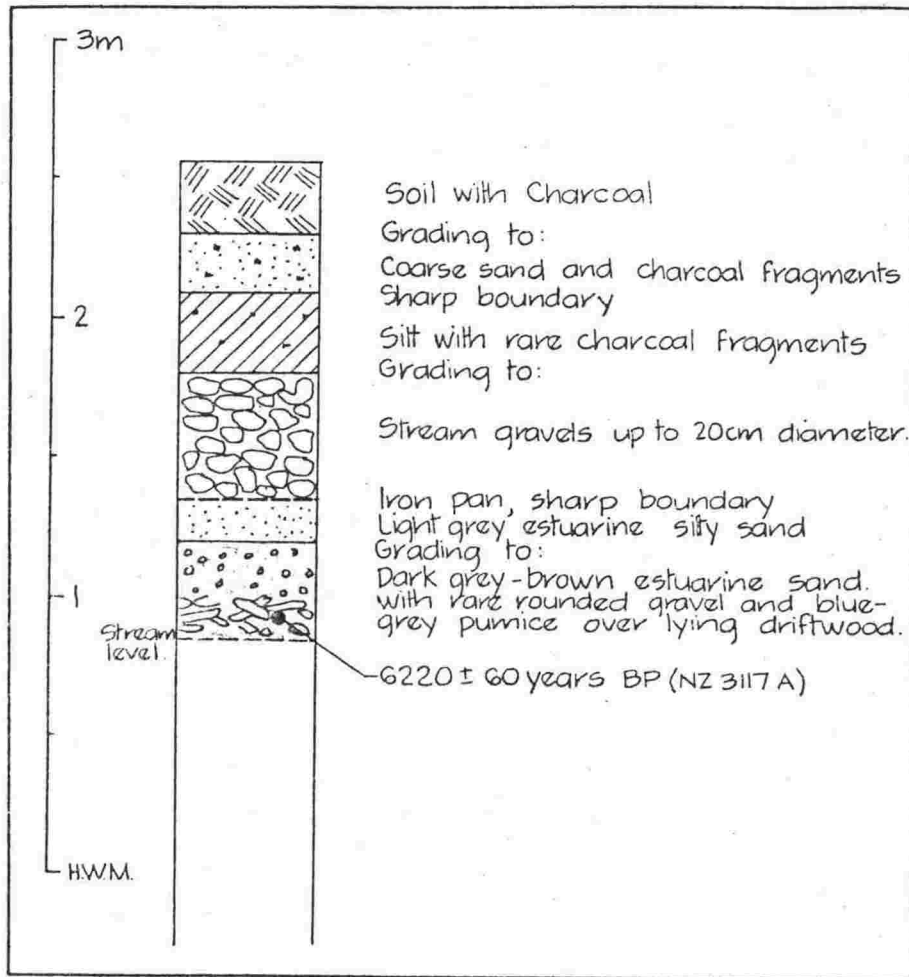 3m
Soil with Charcoal
Grading to:
Coarse sand and charcoal fragments
Sharp boundary
2
Silt with rare charcoal fragments
Grading to:
Stream gravels up to 20cm diameter.
Iron pan, sharp boundary
Light grey estuarine silty sand
Grading to:
Dark grey-brown estuarine sand.
with rare rounded gravel and blue-
grey pumice over lying driftwood.
1
Stream
level.
6220 ± 60 years BP (NZ 3117 A)
H.W.M.